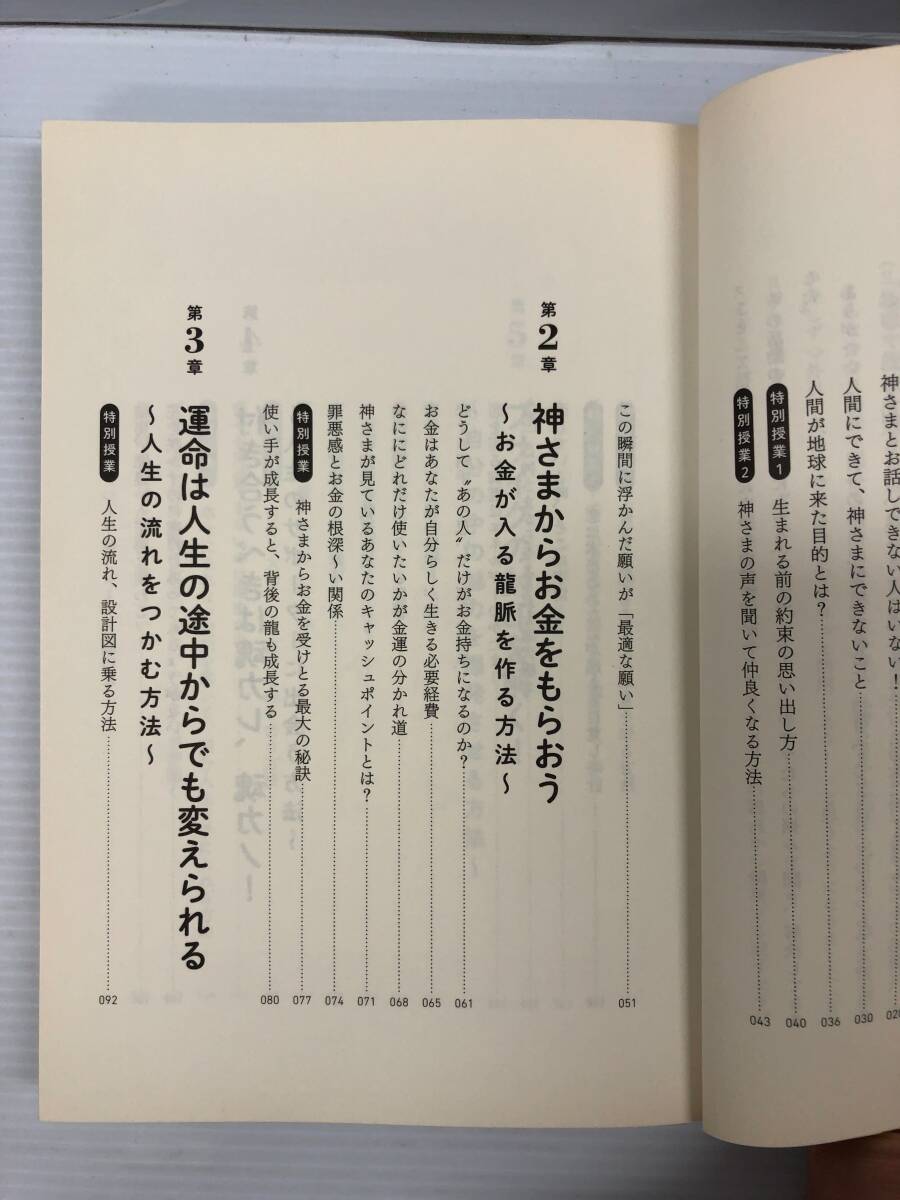 神さまとお話しできない人はいない！
人間にできて、神さまにできないこと 030
人間が地球に来た目的とは？ 036
特別授業1 生まれる前の約束の思い出し方 040
特別授業2 神さまの声を聞いて仲良くなる方法 043
この瞬間に浮かんだ願いが「最適な願い」 051
第2章 神さまからお金をもらおう
〜お金が入る龍脈を作る方法〜
どうして〝あの人〟だけがお金持ちになるのか？ 061
お金はあなたが自分らしく生きる必要経費 065
なににどれだけ使いたいかが金運の分かれ道 068
神さまが見ているあなたのキャッシュポイントとは？ 071
罪悪感とお金の根深〜い関係 074
特別授業 神さまからお金を受けとる最大の秘訣 077
使い手が成長すると、背後の龍も成長する 080
第3章 運命は人生の途中からでも変えられる
〜人生の流れをつかむ方法〜
特別授業 人生の流れ、設計図に乗る方法 092